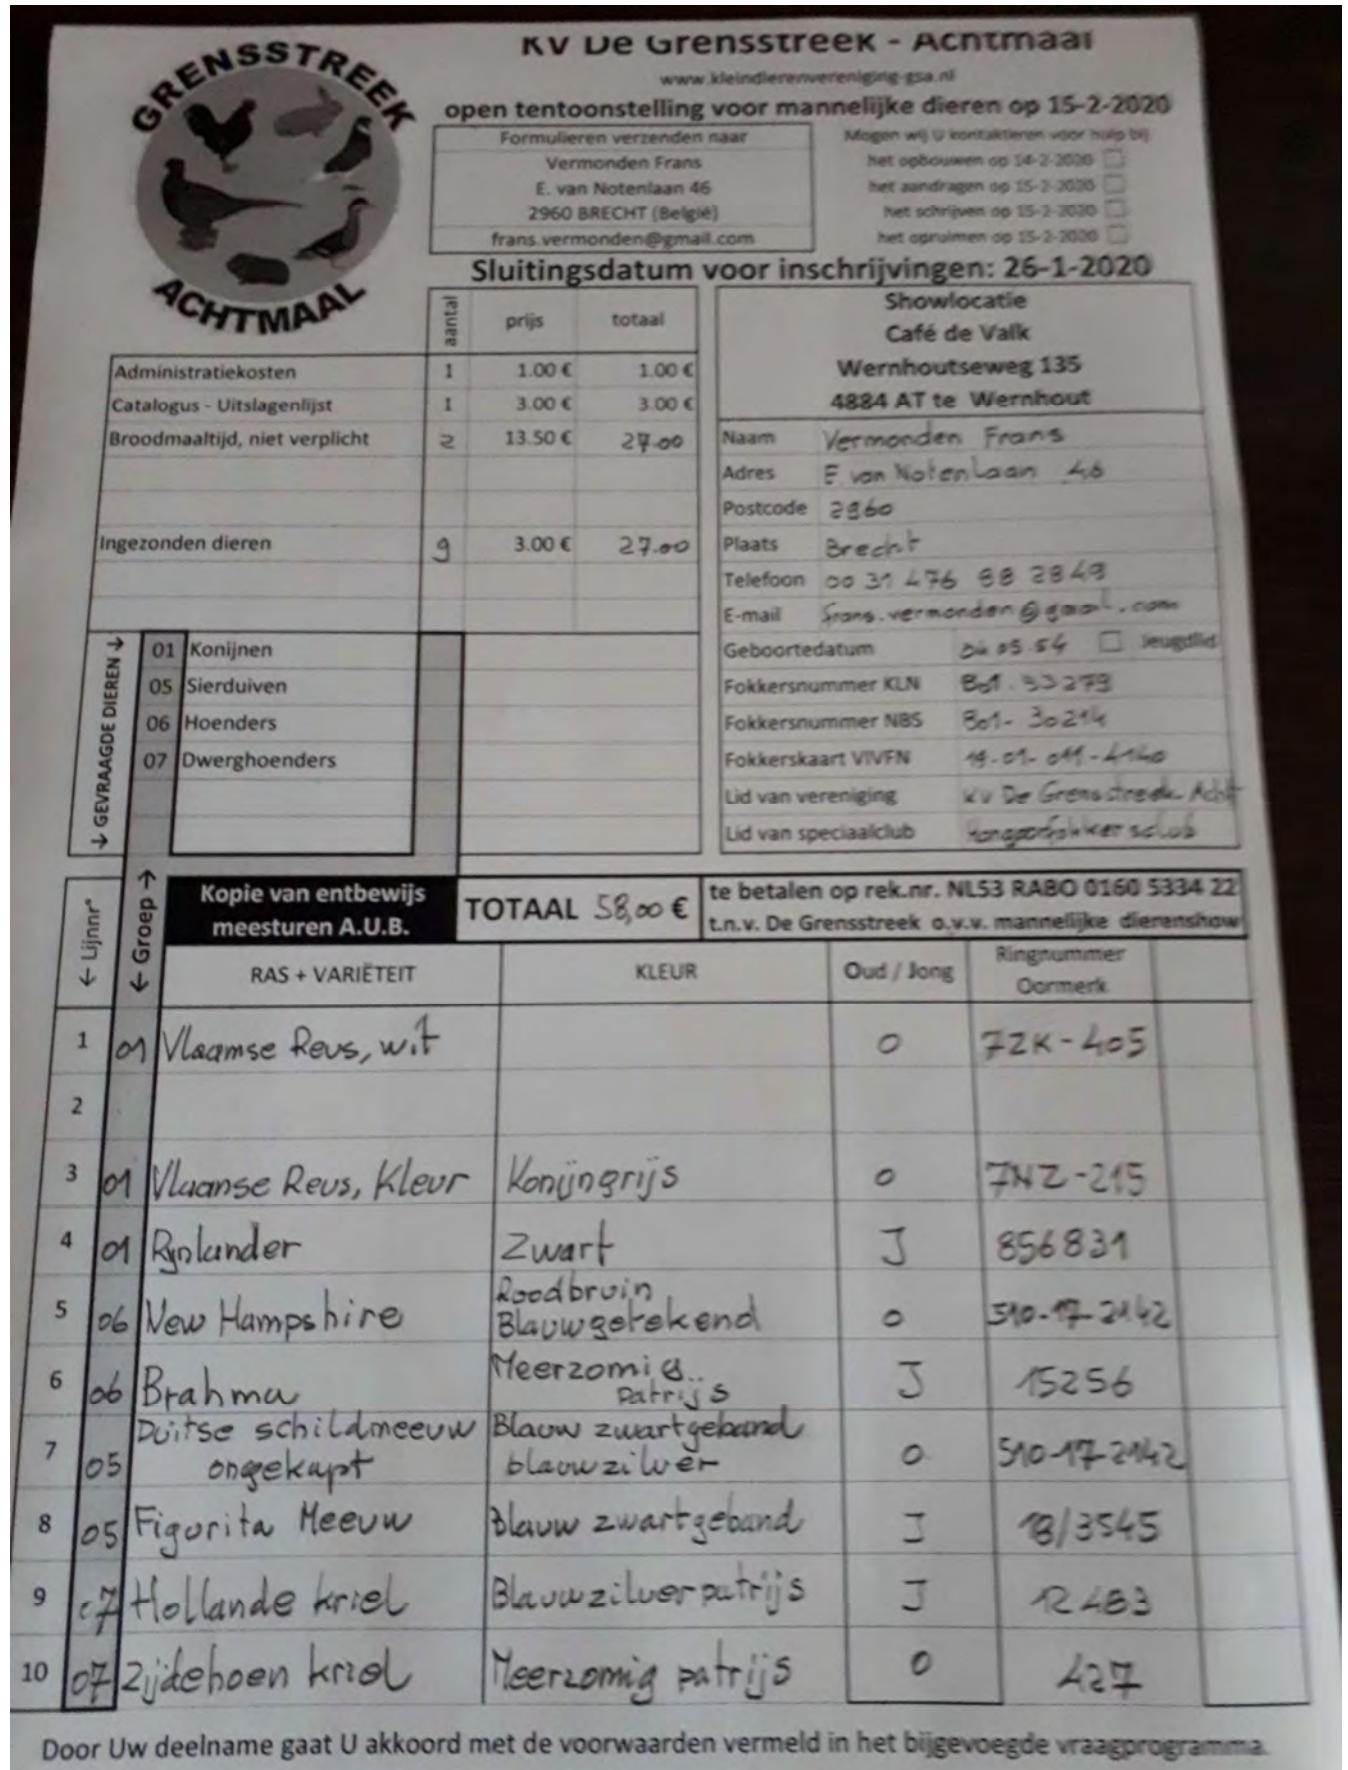 GRENSSTREEK
ACHTMAAL
KV De Grensstreek - Achtmaal
www.kleindierenvereniging-gsa.nl
open tentoonstelling voor mannelijke dieren op 15-2-2020
Formulieren verzenden naar
Vermonden Frans
E. van Notenlaan 46
2960 BRECHT (België)
frans.vermonden@gmail.com
Mogen wij U kontaktieren voor hulp bij
het opbouwen op 14-2-2020
het aandragen op 15-2-2020
het schrijven op 15-2-2020
het opruimen op 15-2-2020
Sluitingsdatum voor inschrijvingen: 26-1-2020
aantal prijs totaal
Administratiekosten 1 1.00 € 1.00 €
Catalogus - Uitslagenlijst 1 3.00 € 3.00 €
Broodmaaltijd, niet verplicht 2 13.50 € 27.00
Ingezonden dieren 9 3.00 € 27.00
Showlocatie
Café de Valk
Wernhoutseweg 135
4884 AT te Wernhout
Naam Vermonden Frans
Adres E van Notenlaan 46
Postcode 2960
Plaats Brecht
Telefoon 00 31 476 88 2849
E-mail frans.vermonden@gmail.com
Geboortedatum 05.54 Jeugdlid
Fokkersnummer KLN B01.33279
Fokkersnummer NBS B01-30214
Fokkerskaart VIVFN 19-01-011-4140
Lid van vereniging KV De Grensstreek Acht
Lid van speciaalclub
↓ GEVRAAGDE DIEREN ↓
01 Konijnen
05 Sierduiven
06 Hoenders
07 Dwerghoenders
← Lijnnr°
← Groep →
Kopie van entbewijs
meesturen A.U.B.
TOTAAL 58,00 €
te betalen op rek.nr. NL53 RABO 0160 5334 22
t.n.v. De Grensstreek o.v.v. mannelijke dierenshow
RAS + VARIËTEIT KLEUR Oud / Jong Ringnummer
Oormerk
1 01 Vlaamse Reus, wit O 7ZK-405
2
3 01 Vlaanse Reus, Kleur Konijngrijs O 7NZ-215
4 01 Rijnlander Zwart J 856831
5 06 New Hampshire Roodbruin
Blauwgetekend O 510-17-2142
6 06 Brahma Meerzomig
patrijs J 15256
7 05 Duitse schildmeeuw Blauw zwartgeband
ongekapt blauwzilver O 510-17-2142
8 05 Figurita Meeuw Blauw zwartgeband J 18/3545
9 07 Hollande kriel Blauwzilverpatrijs J 12483
10 07 Zijdehoen kriel Meerzomig patrijs O 427
Door Uw deelname gaat U akkoord met de voorwaarden vermeld in het bijgevoegde vraagprogramma.